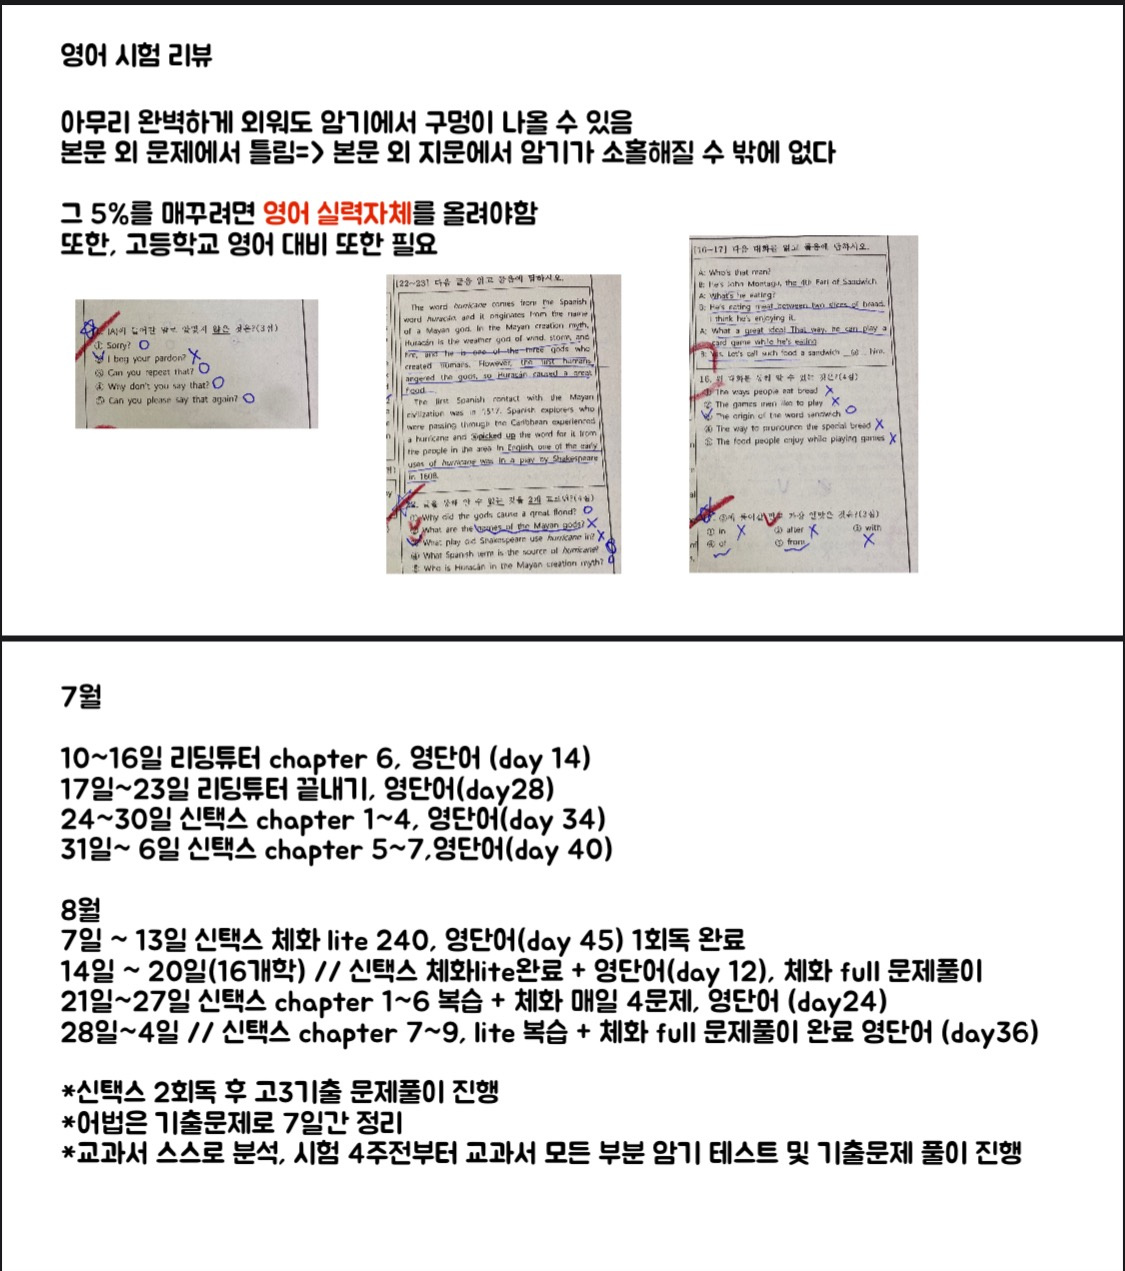 영어 시험 리뷰
아무리 완벽하게 외워도 암기에서 구멍이 나올 수 있음
본문 외 문제에서 틀림=> 본문 외 지문에서 암기가 소홀해질 수 밖에 없다
그 5%를 매꾸려면 영어 실력자체를 올려야함
또한, 고등학교 영어 대비 또한 필요
① Sorry?
I beg your pardon?
③ Can you repeat that?
④ Why don't you say that?
⑤ Can you please say that again?
[22~23] 다음 글을 읽고 물음에 답하시오.
The word hurricane comes from the Spanish
word huracán and it originates from the name
of a Mayan god. In the Mayan creation myth,
Huracán is the weather god of wind, storm, and
fire, and he is one of the three gods who
created humans. However, the first humans
angered the gods, so Huracán caused a great
flood.
The first Spanish contact with the Mayan
civilization was in 1517. Spanish explorers who
were passing through the Caribbean experienced
a hurricane and picked up the word for it from
the people in the area. In English, one of the early
uses of hurricane was in a play by Shakespeare
in 1608.
① Why did the gods cause a great flood?
What are the names of the Mayan gods?
What play did Shakespeare use hurricane in?
④ What Spanish term is the source of hurricane?
Who is Huracán in the Mayan creation myth?
[16~17] 다음 대화를 읽고 물음에 답하시오.
A: Who's that man?
B: He's John Montagu, the 4th Earl of Sandwich.
A: What's he eating?
B: He's eating meat between two slices of bread.
I think he's enjoying it.
A: What a great idea! That way, he can play a
card game while he's eating.
B: Yes. Let's call such food a sandwich him.
16. 위 대화를 통해 알 수 있는 것은?(4점)
① The ways people eat bread
② The games men like to play
The origin of the word sandwich
④ The way to pronounce the special bread
⑤ The food people enjoy while playing games
가장 알맞은 것은?(3점)
① in ② after ③ with
④ of ⑤ from
7월
10~16일 리딩튜터 chapter 6, 영단어 (day 14)
17일~23일 리딩튜터 끝내기, 영단어(day28)
24~30일 신택스 chapter 1~4, 영단어(day 34)
31일~ 6일 신택스 chapter 5~7,영단어(day 40)
8월
7일 ~ 13일 신택스 체화 lite 240, 영단어(day 45) 1회독 완료
14일 ~ 20일(16개학) // 신택스 체화lite완료 + 영단어(day 12), 체화 full 문제풀이
21일~27일 신택스 chapter 1~6 복습 + 체화 매일 4문제, 영단어 (day24)
28일~4일 // 신택스 chapter 7~9, lite 복습 + 체화 full 문제풀이 완료 영단어 (day36)
*신택스 2회독 후 고3기출 문제풀이 진행
*어법은 기출문제로 7일간 정리
*교과서 스스로 분석, 시험 4주전부터 교과서 모든 부분 암기 테스트 및 기출문제 풀이 진행